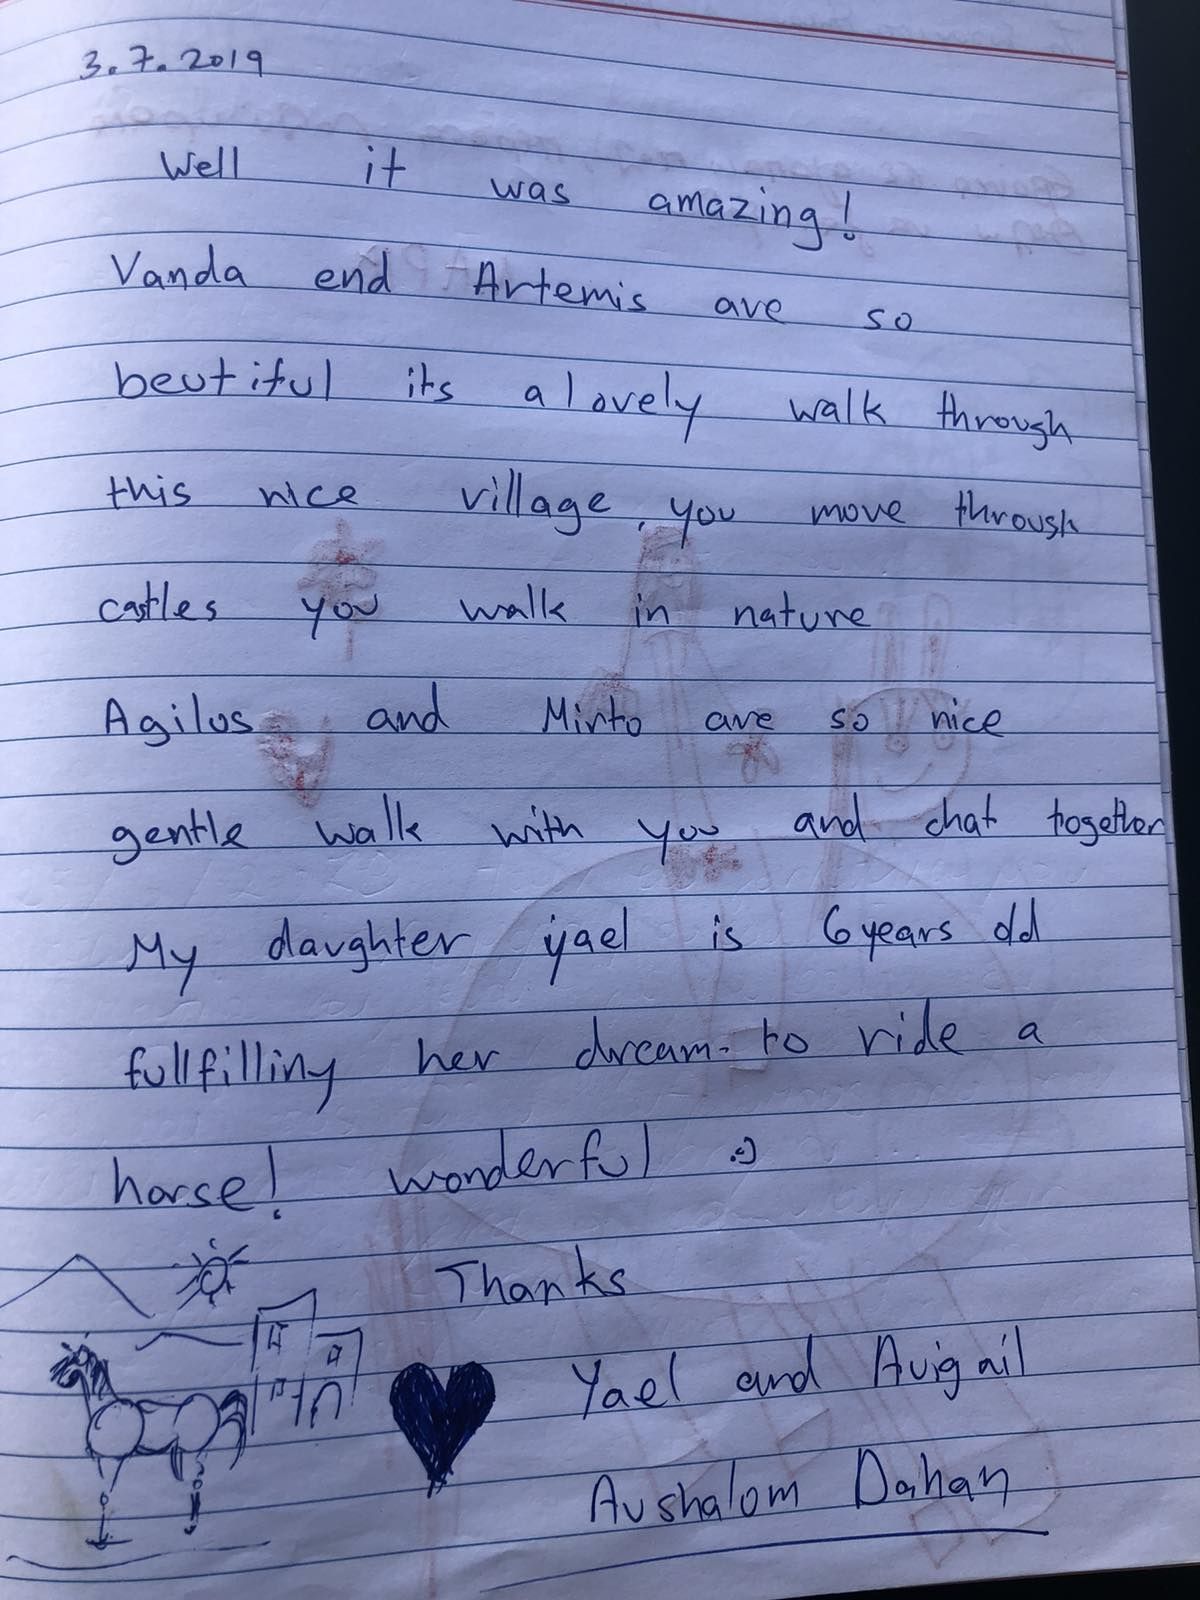 3.7.2019
Well it was amazing!
Vanda end Artemis are so
beutiful its a lovely walk through
this nice village, you move through
castles you walk in nature
Agilos and Mirto are so nice
gentle walk with you and chat together
My daughter yael is 6 years old
fullfilling her dream - to ride a
horse! wonderful :)
Thanks
Yael and Avigail
Avshalom Dahan